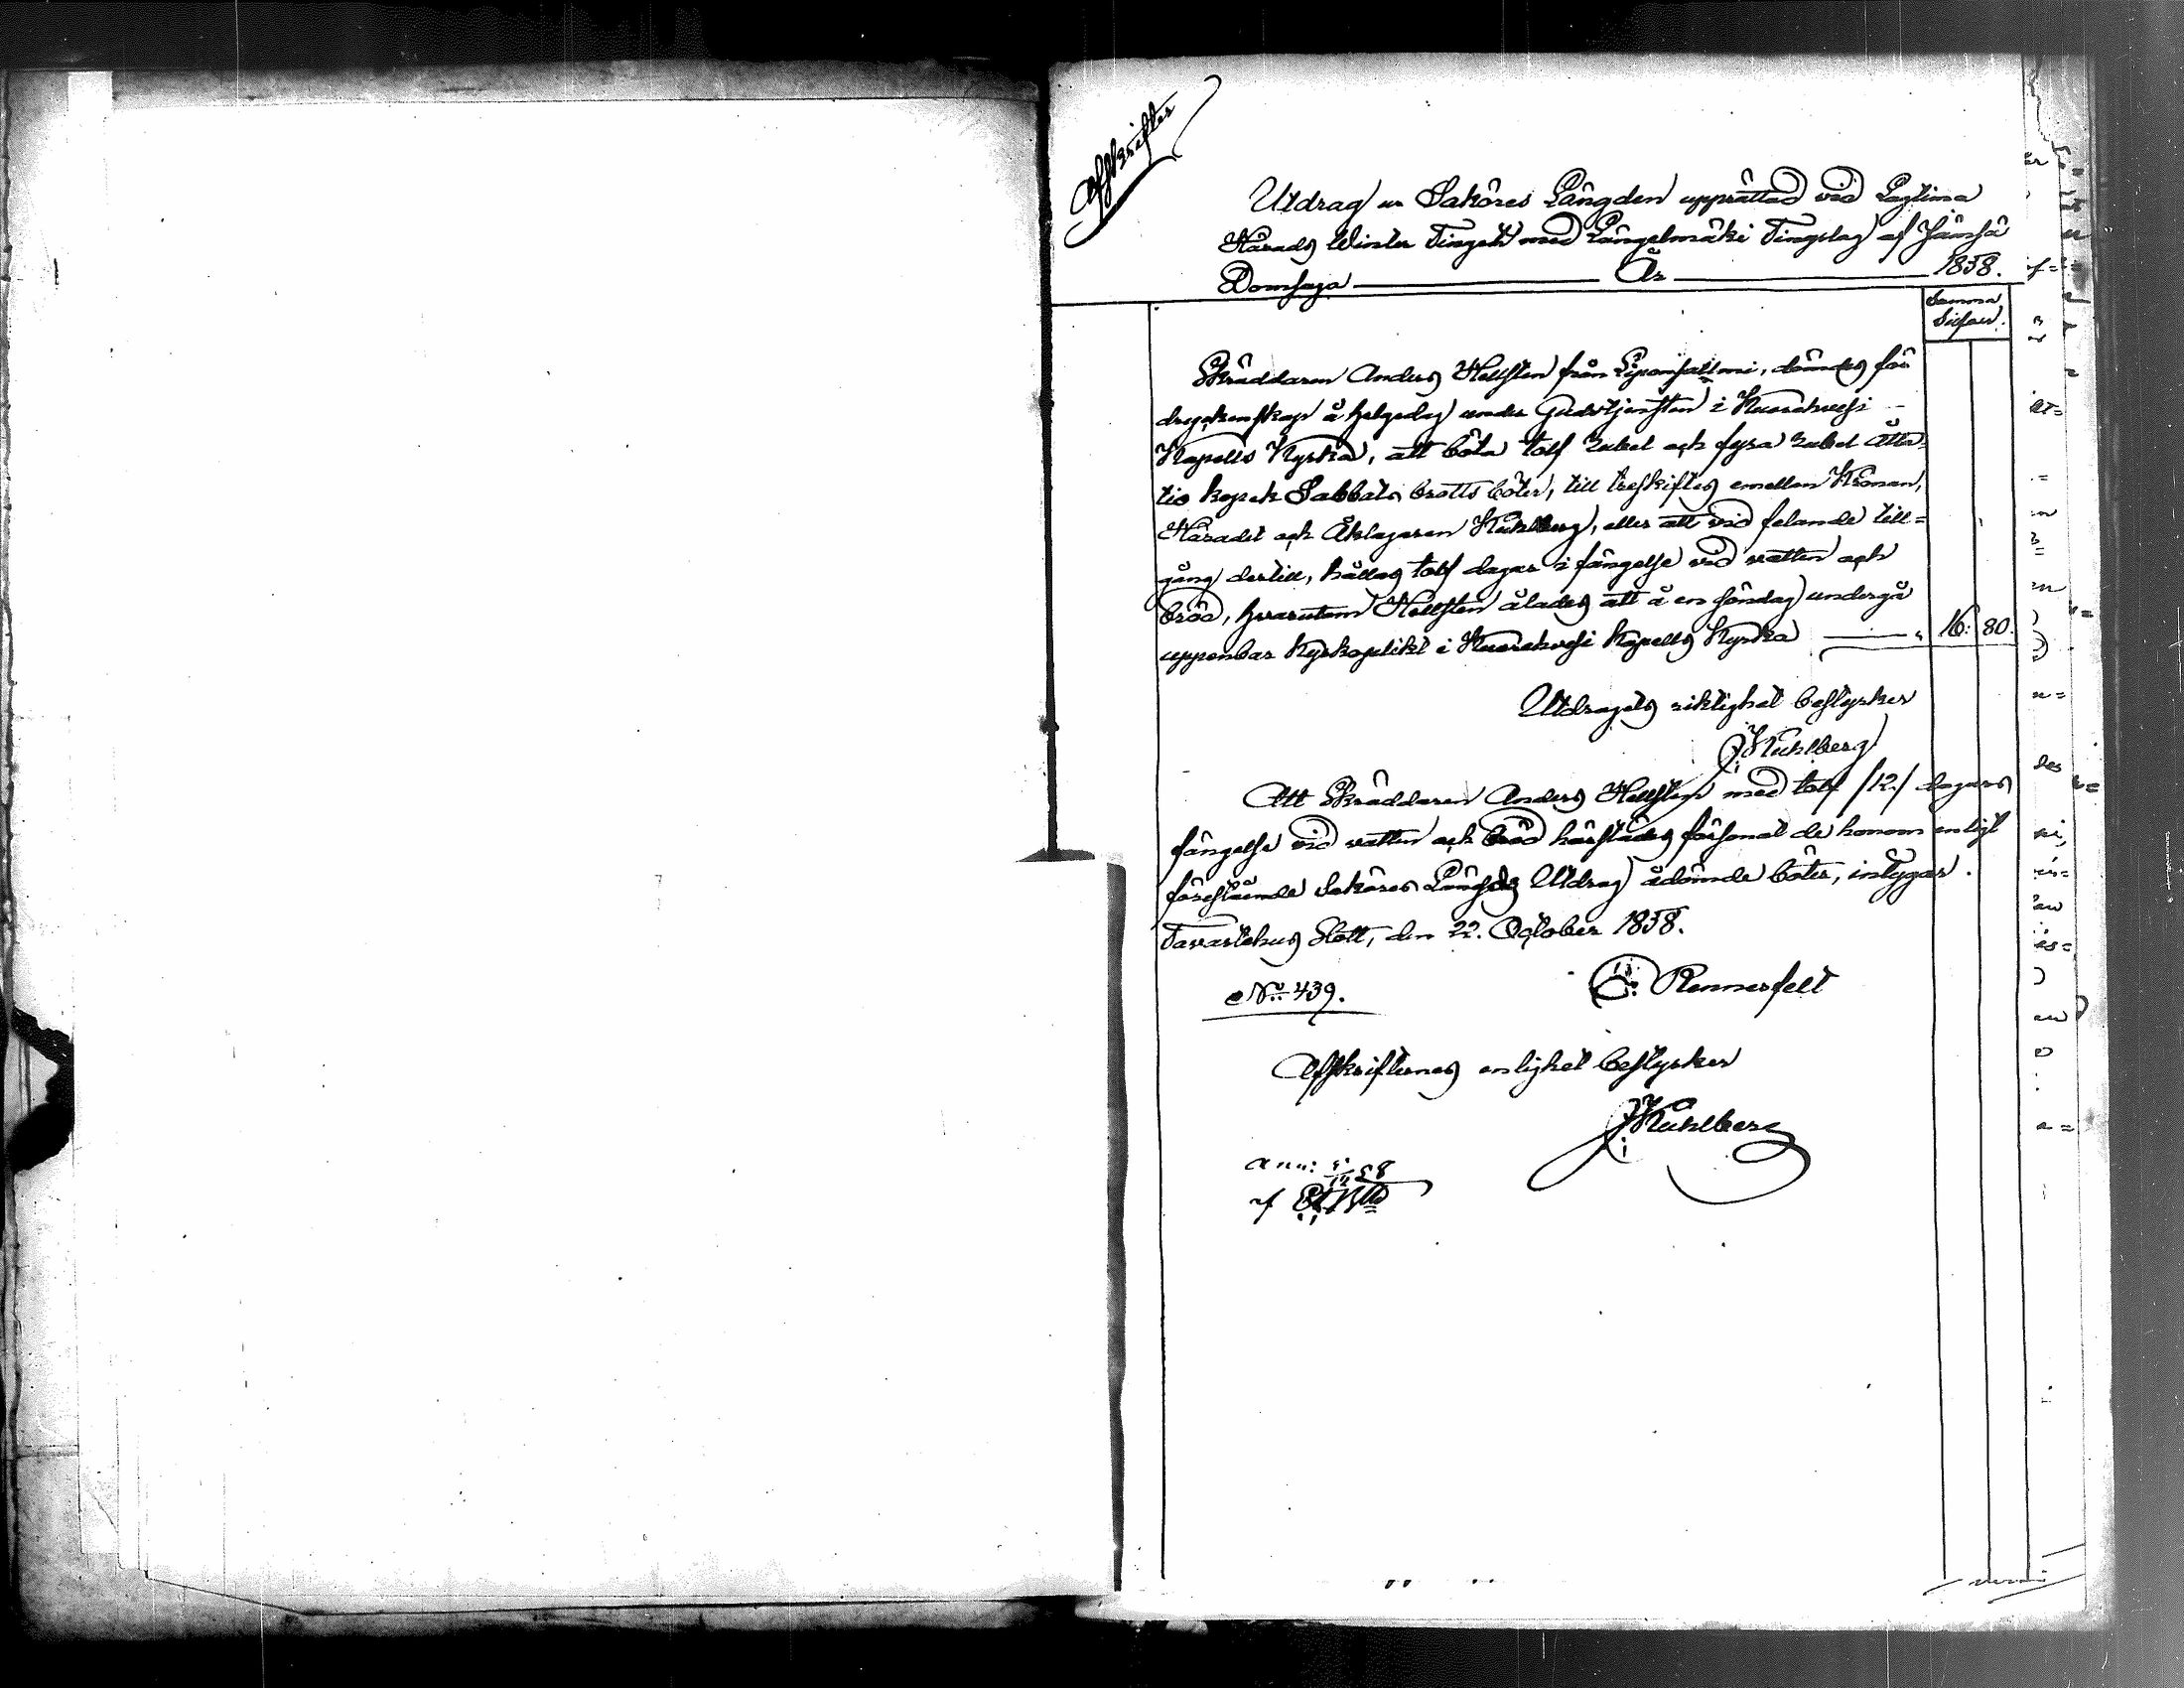 Afskrifter
Utdrag ur Saköres Längden upprättad vid Lagtima
Härads Winter Tinget med Längelmäki Tingslag af Jämsä
Domsaga År 1858.
Summa
Silfver.
Skräddaren Anders Hellsten från dömdes för
dryckenskap å helgedag under Gudstjensten i Kuorehvesi
Kapells Kyrka, att böta tolf rubel och fyra rubel åtta-
tio kopek Sabbats brotts böter, till treskiftes emellan Kronan,
Häradet och Åklagaren Kuhlberg, eller att vid felande till=
gång dertill, hållas tolf dagar i fängelse vid vatten och
bröd, hvarutom Hellsten ålades att å en söndag undergå
uppenbar Kyrkoplikt i Kuorehvesi Kapells Kyrka 16: 80.
Utdragets riktighet bestyrker
J Kuhlberg
Att Skräddaren Anders Hellsten med tolf /12/ dagars
fängelse vid vatten och bröd härstädes försonat de honom enligt
förestående Saköres Längds Utdrag ådömde böter, intygar.
Tavastehus Slott, den 22. October 1858.
No 439. Rennerfelt
Afskrifternes enlighet bestyrker
J Kuhlberg
af